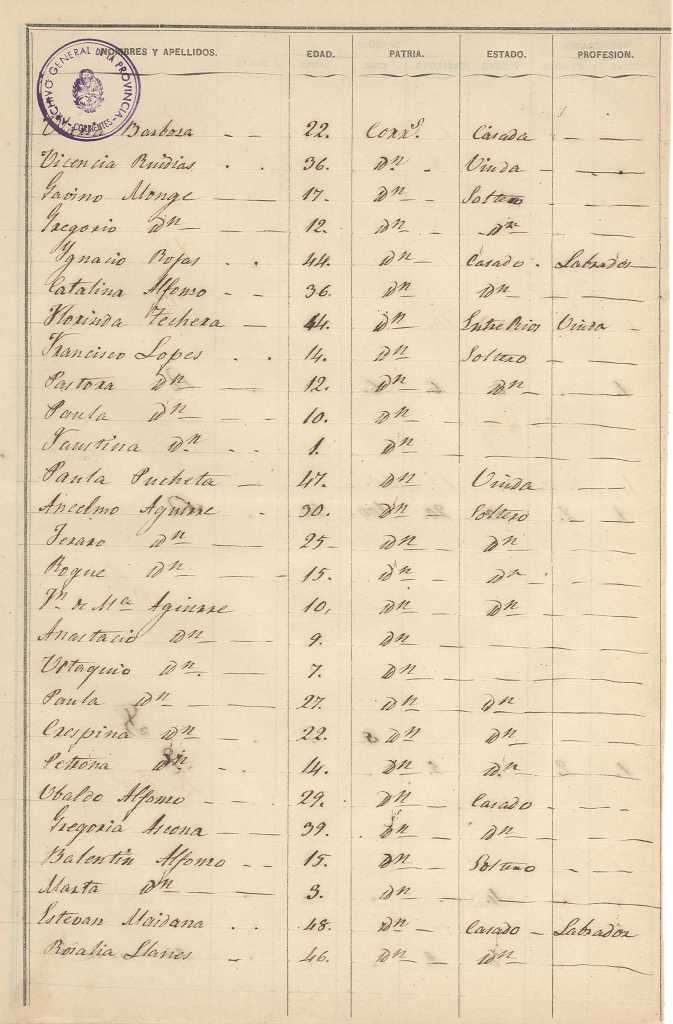 NOMBRES Y APELLIDOS. EDAD. PATRIA. ESTADO. PROFESION.
ARCHIVO GENERAL DE LA PROVINCIA
CORRIENTES
Barbosa 22. Corr.s Casada
Vicencia Ruidias 36. Dn. Viuda
Gavino Monge 17. Dn Soltero
Gregorio Dn 12. Dn Dn
Ygnacio Rojas 44. Dn Casado Labrador
Catalina Alfonso 36. Dn Dn
Florinda Techera 44. Dn Entre Rios Viuda
Francisco Lopes 14. Dn Soltero
Pastora Dn 12. Dn Dn
Paula Dn 10. Dn
Faustina Dn 1. Dn
Paula Pucheta 47. Dn Viuda
Ancelmo Aguirre 30. Dn Soltero
Jenaro Dn 25 Dn Dn
Roque Dn 15. Dn Dn
Jn de Ma Aguirre 10, Dn Dn
Anastacio Dn 9. Dn
Ustaquio Dn. 7. Dn
Paula Dn 27. Dn Dn
Crespina Dn 22. Dn Dn
Petrona Dn. 14. Dn Dn
Ubaldo Alfonso 29. Dn Casado
Gregoria Ascona 39. Dn Dn
Balentin Alfonso 15. Dn Soltero
Marta Dn 3. Dn
Estevan Maidana 48. Dn Casado Labrador
Rosalia Llanes 46. Dn Dn